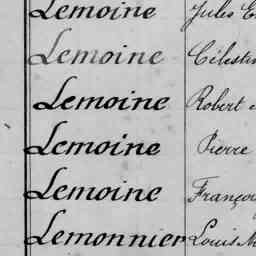 Lemoine Jules
Lemoine Célestin
Lemoine Robert
Lemoine Pierre
Lemoine François
Lemonnier Louis M